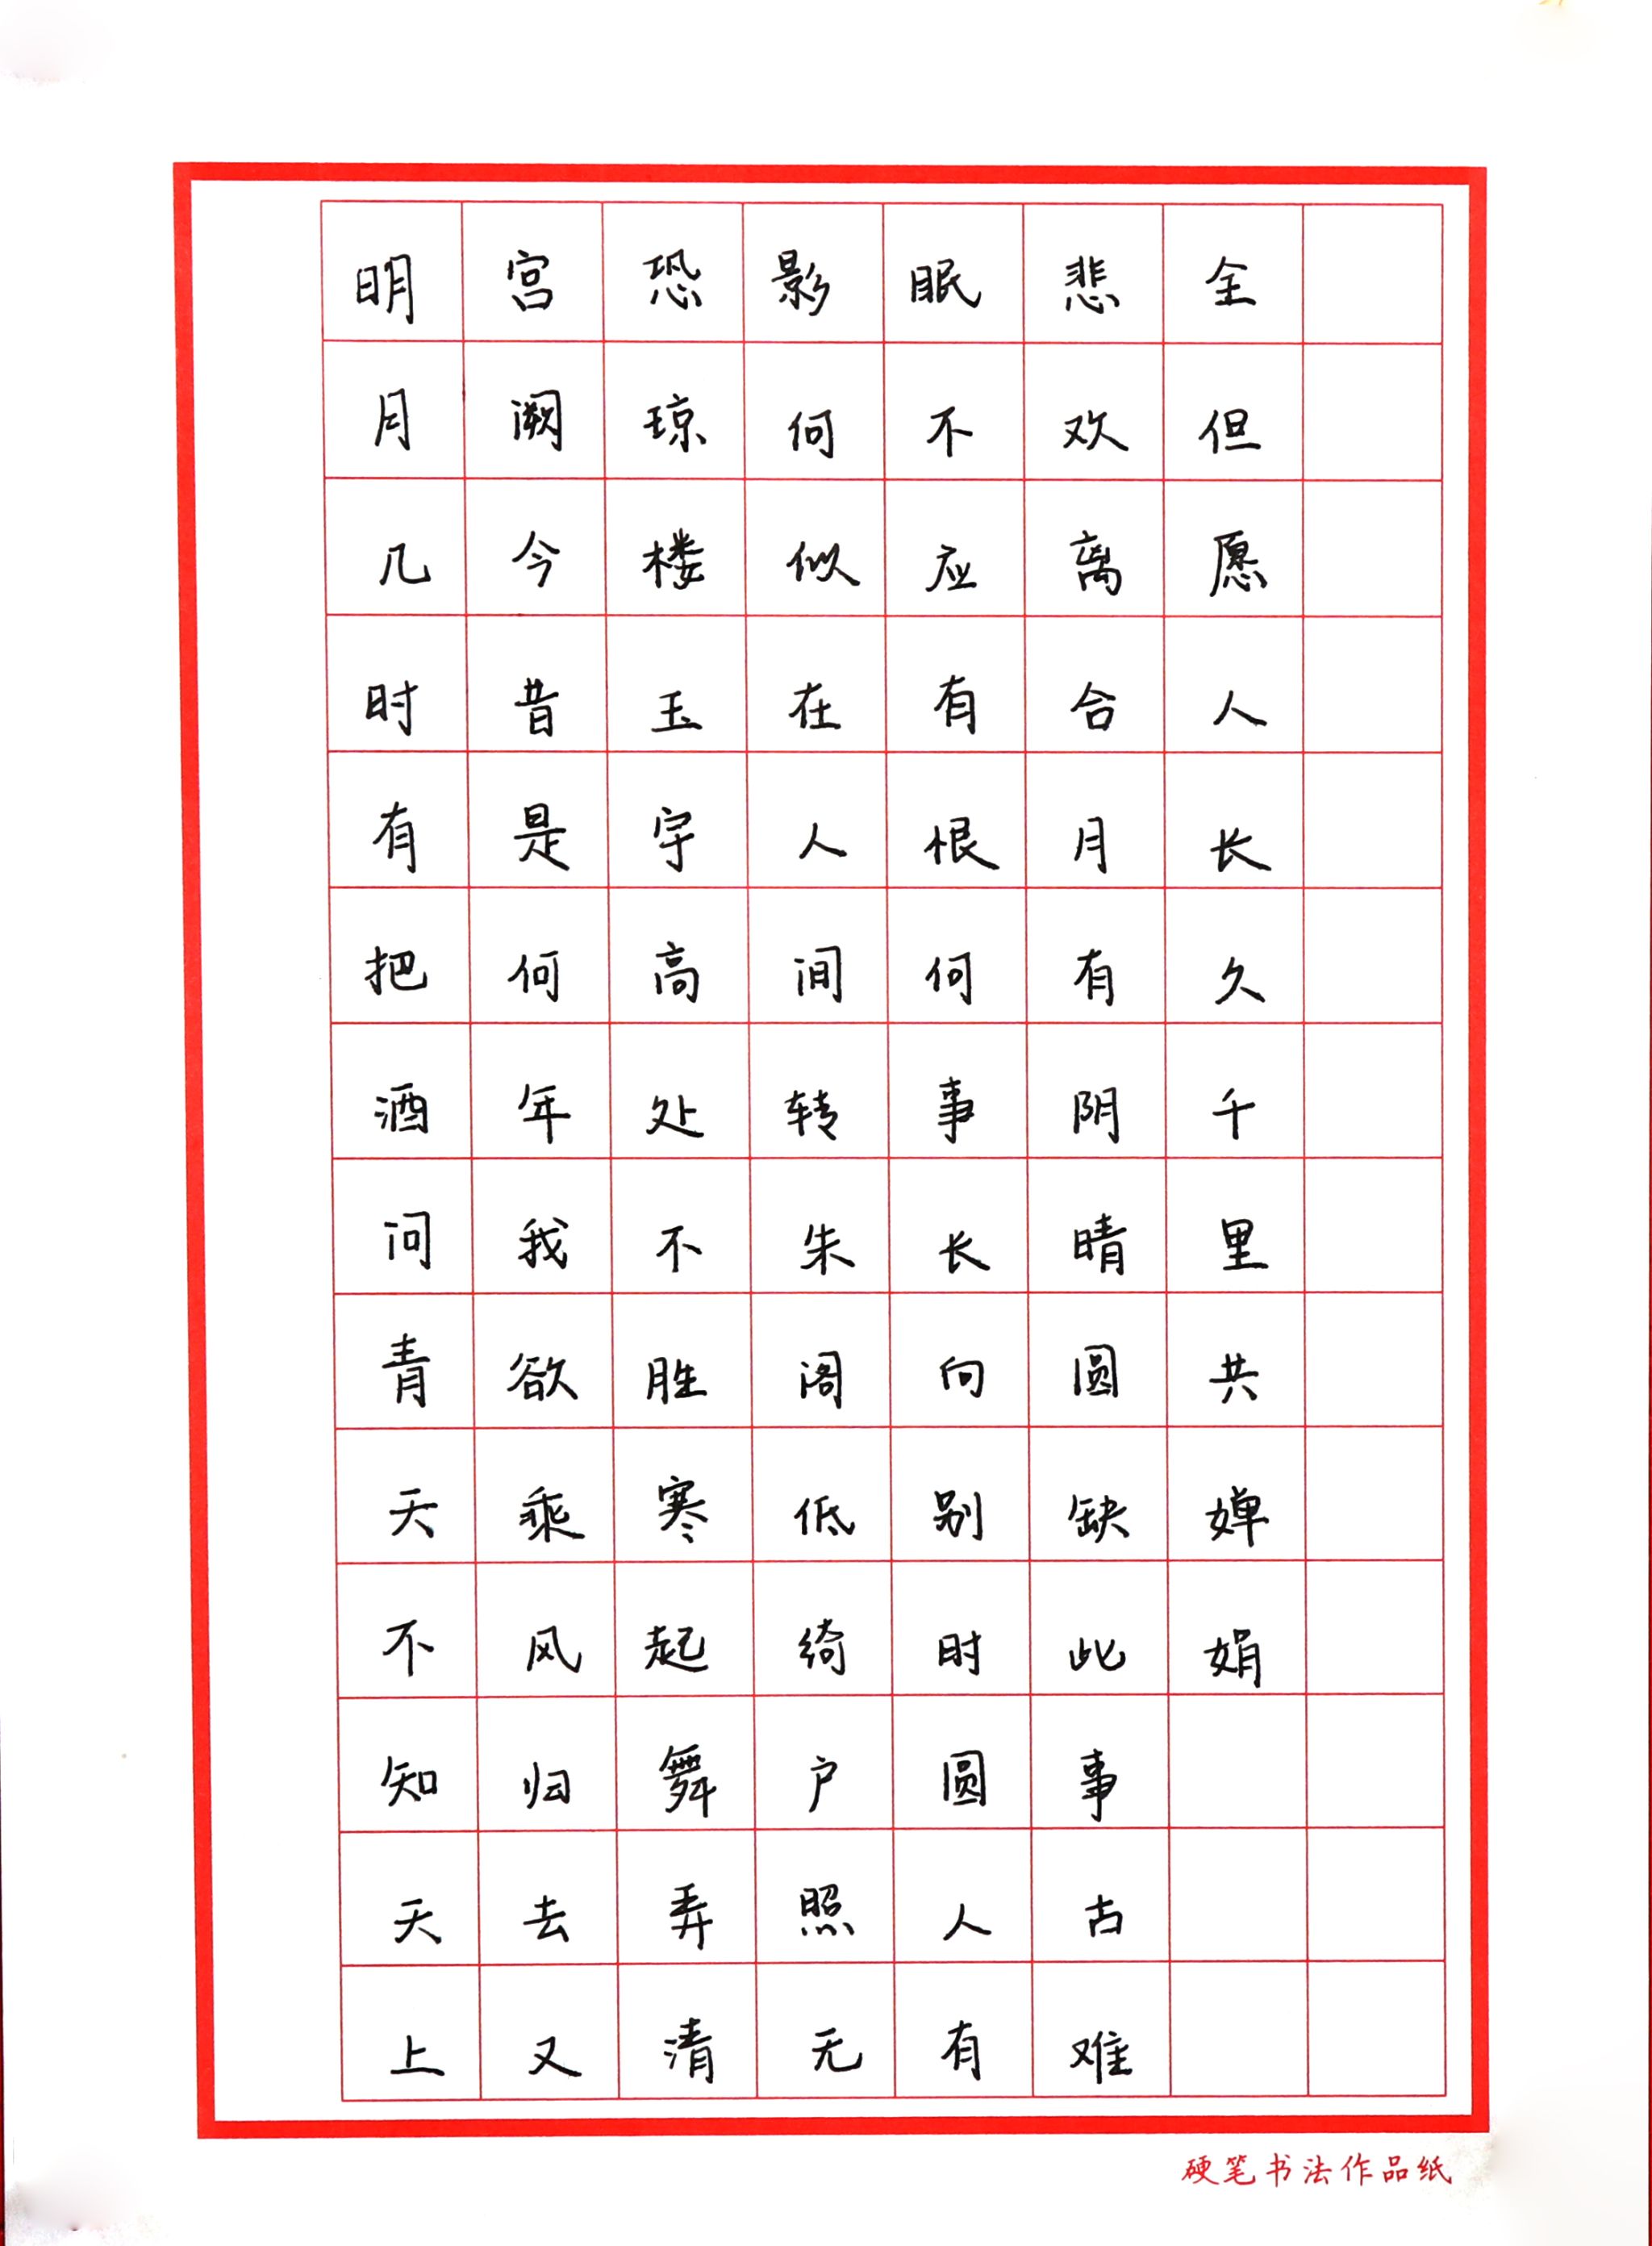 明月几时有把酒问青天不知天上
宫阙今昔是何年我欲乘风归去又
恐琼楼玉宇高处不胜寒起舞弄清
影何似在人间转朱阁低绮户照无
眠不应有恨何事长向别时圆人有
悲欢离合月有阴晴圆缺此事古难
全但愿人长久千里共婵娟
硬笔书法作品纸